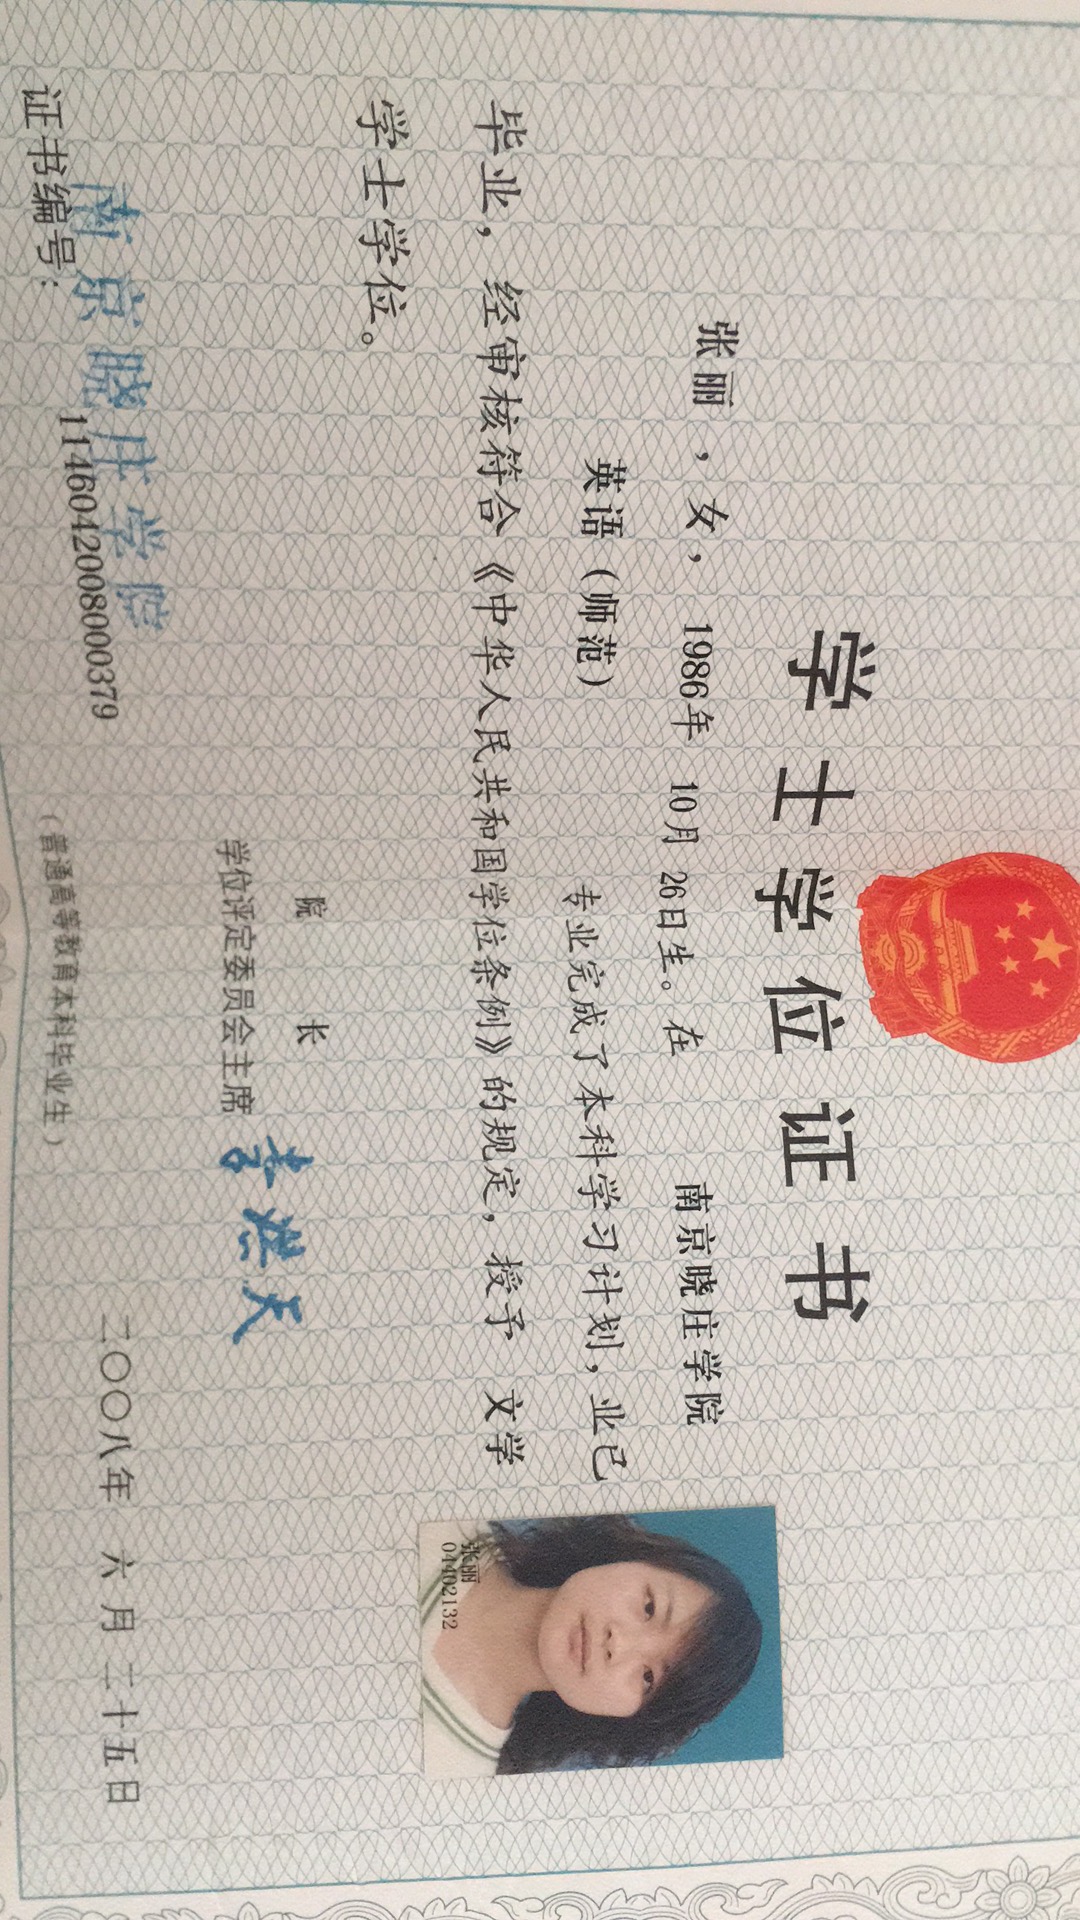 学士学位证书
张丽，女， 1986年 10月 26日生。在 南京晓庄学院
英语（师范） 专业完成了本科学习计划，业已
毕业，经审核符合《中华人民共和国学位条例》的规定，授予 文学
学士学位。
张丽
04402132
院 长
学位评定委员会主席
南京晓庄学院
证书编号： 1146042008000379
二〇〇八年 六月 二十五日
（普通高等教育本科毕业生）